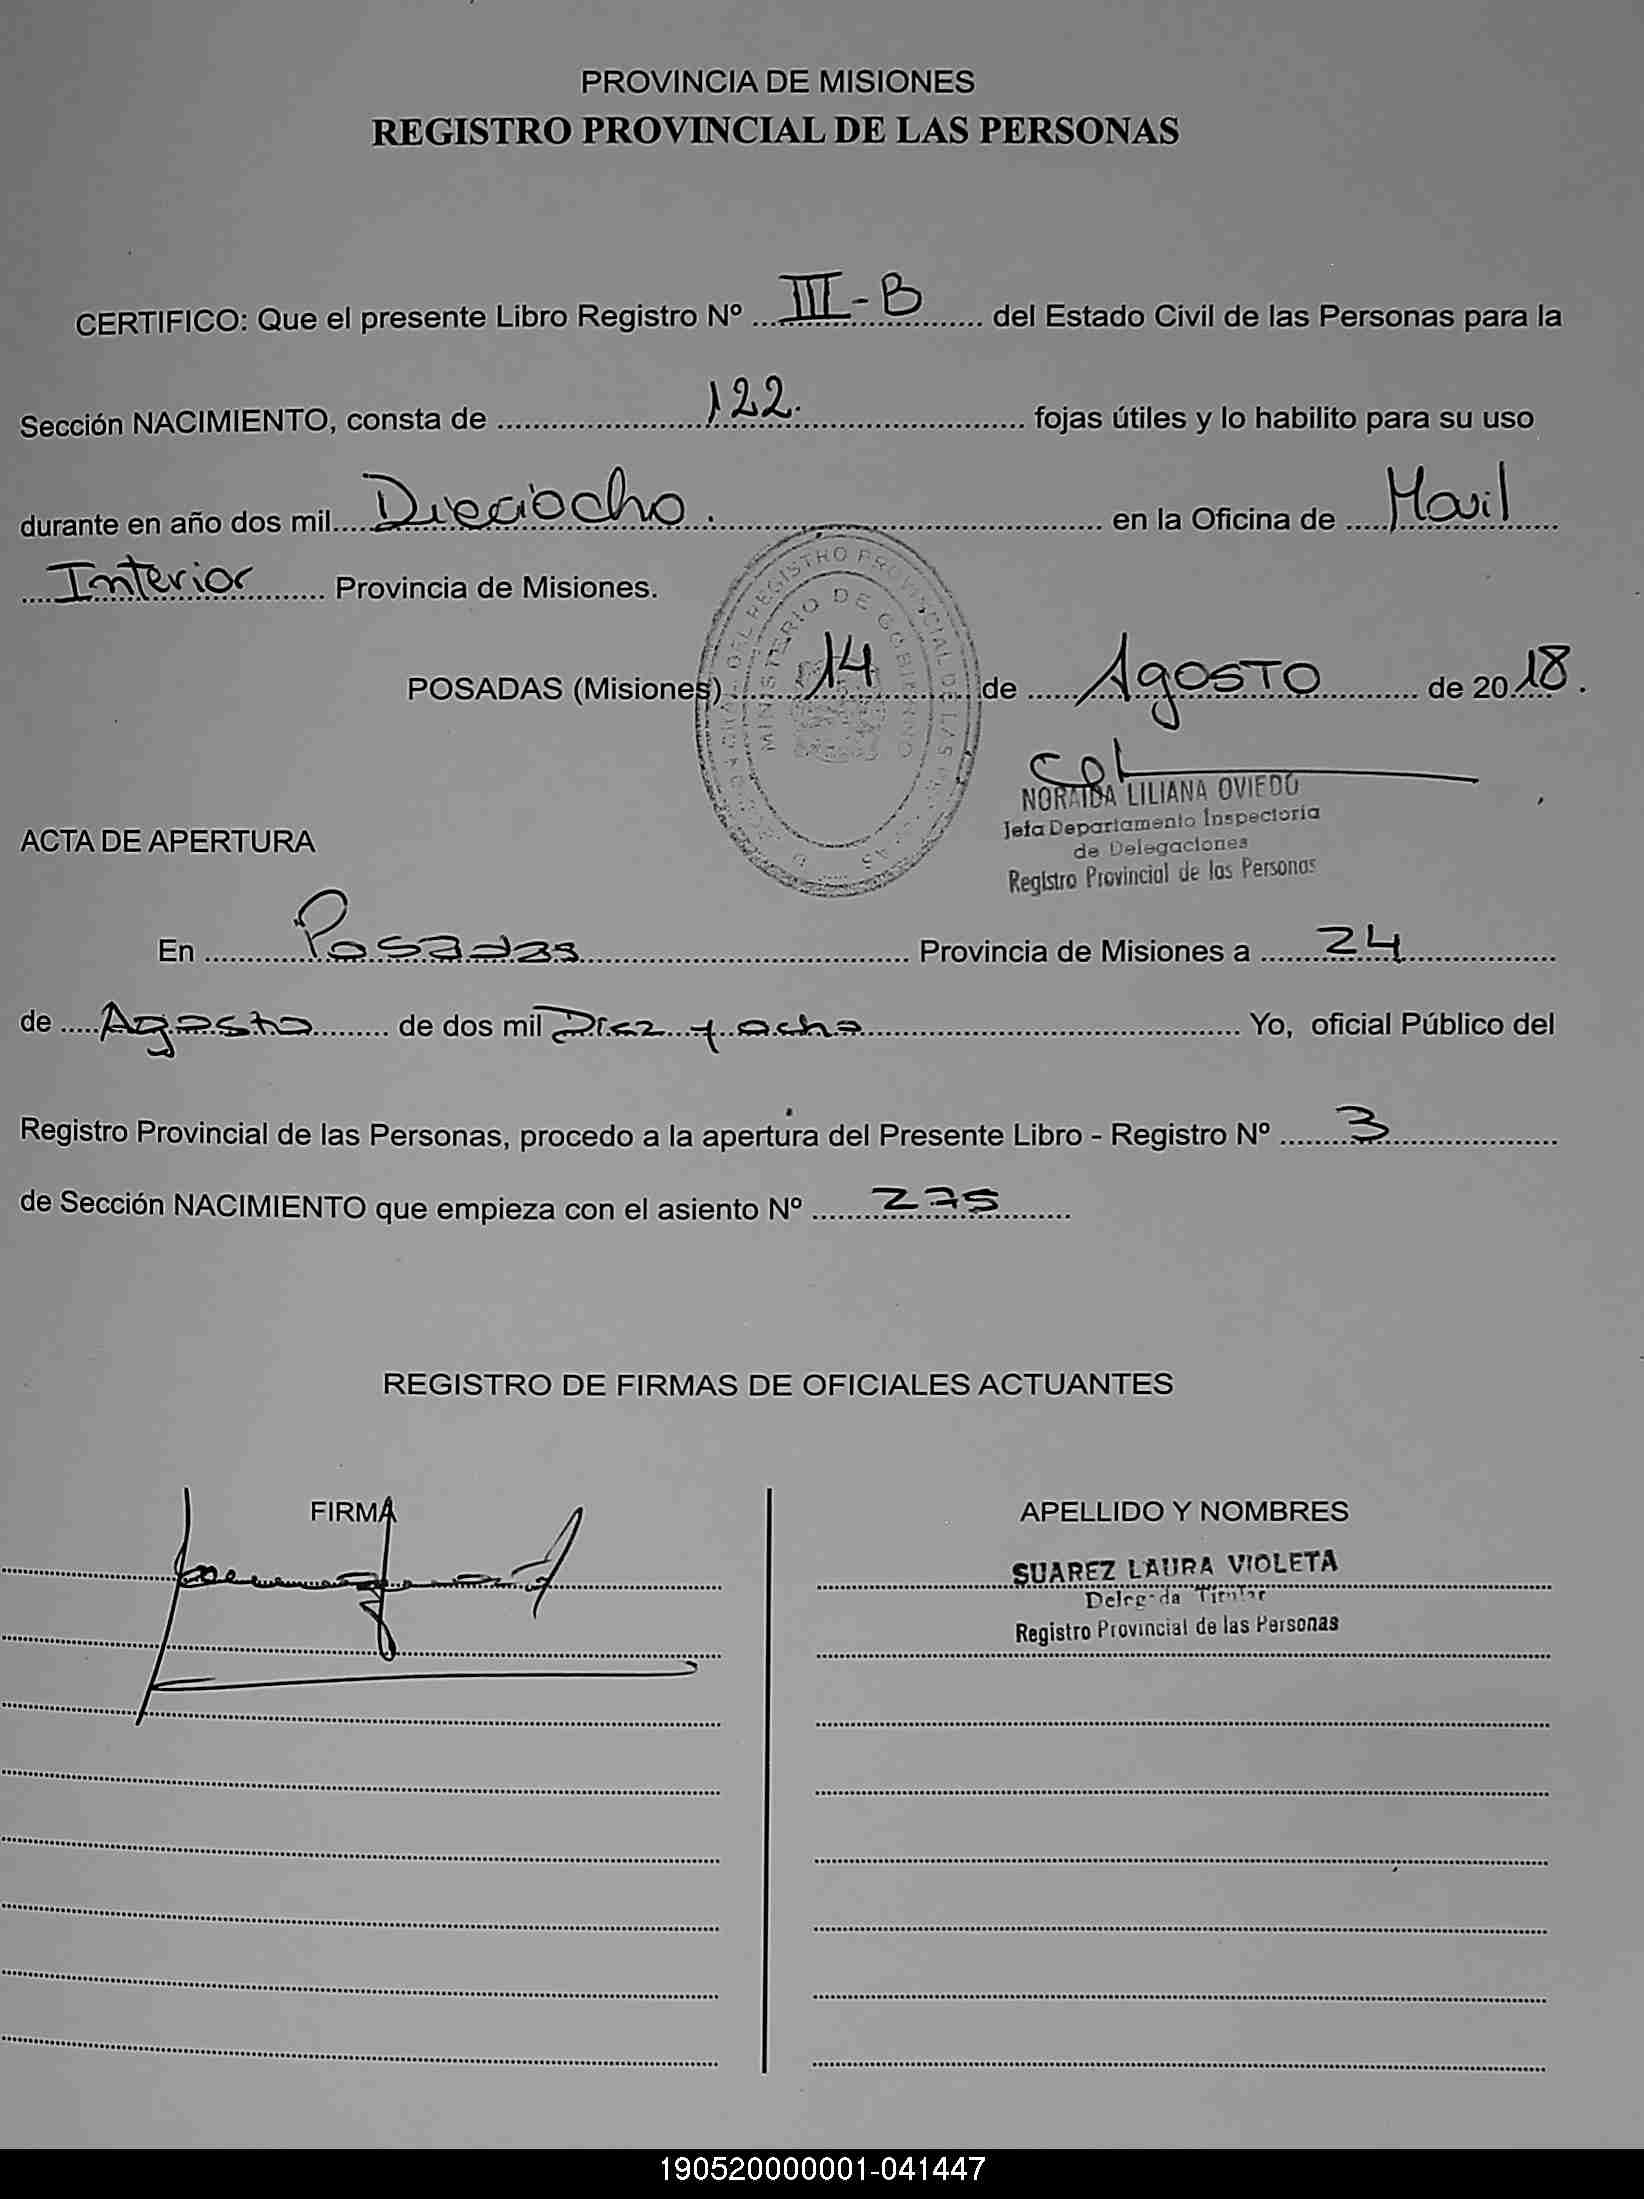 PROVINCIA DE MISIONES
REGISTRO PROVINCIAL DE LAS PERSONAS
CERTIFICO: Que el presente Libro Registro Nº III-B del Estado Civil de las Personas para la
Sección NACIMIENTO, consta de 122. fojas útiles y lo habilito para su uso
durante en año dos mil Dieciocho. en la Oficina de Movil
Interior Provincia de Misiones.
POSADAS (Misiones) 14 de Agosto de 2018.
REGISTRO PROVINCIAL DE LAS
MINISTERIO DE GOBIERNO
NORAIDA LILIANA OVIEDO
Jefa Departamento Inspectoria
de Delegaciones
Registro Provincial de las Personas
ACTA DE APERTURA
En Posadas Provincia de Misiones a 24
de Agosto de dos mil Diez y ocho Yo, oficial Público del
Registro Provincial de las Personas, procedo a la apertura del Presente Libro - Registro Nº 3
de Sección NACIMIENTO que empieza con el asiento Nº 275
REGISTRO DE FIRMAS DE OFICIALES ACTUANTES
FIRMA
APELLIDO Y NOMBRES
SUAREZ LAURA VIOLETA
Delegada Titular
Registro Provincial de las Personas
190520000001-041447